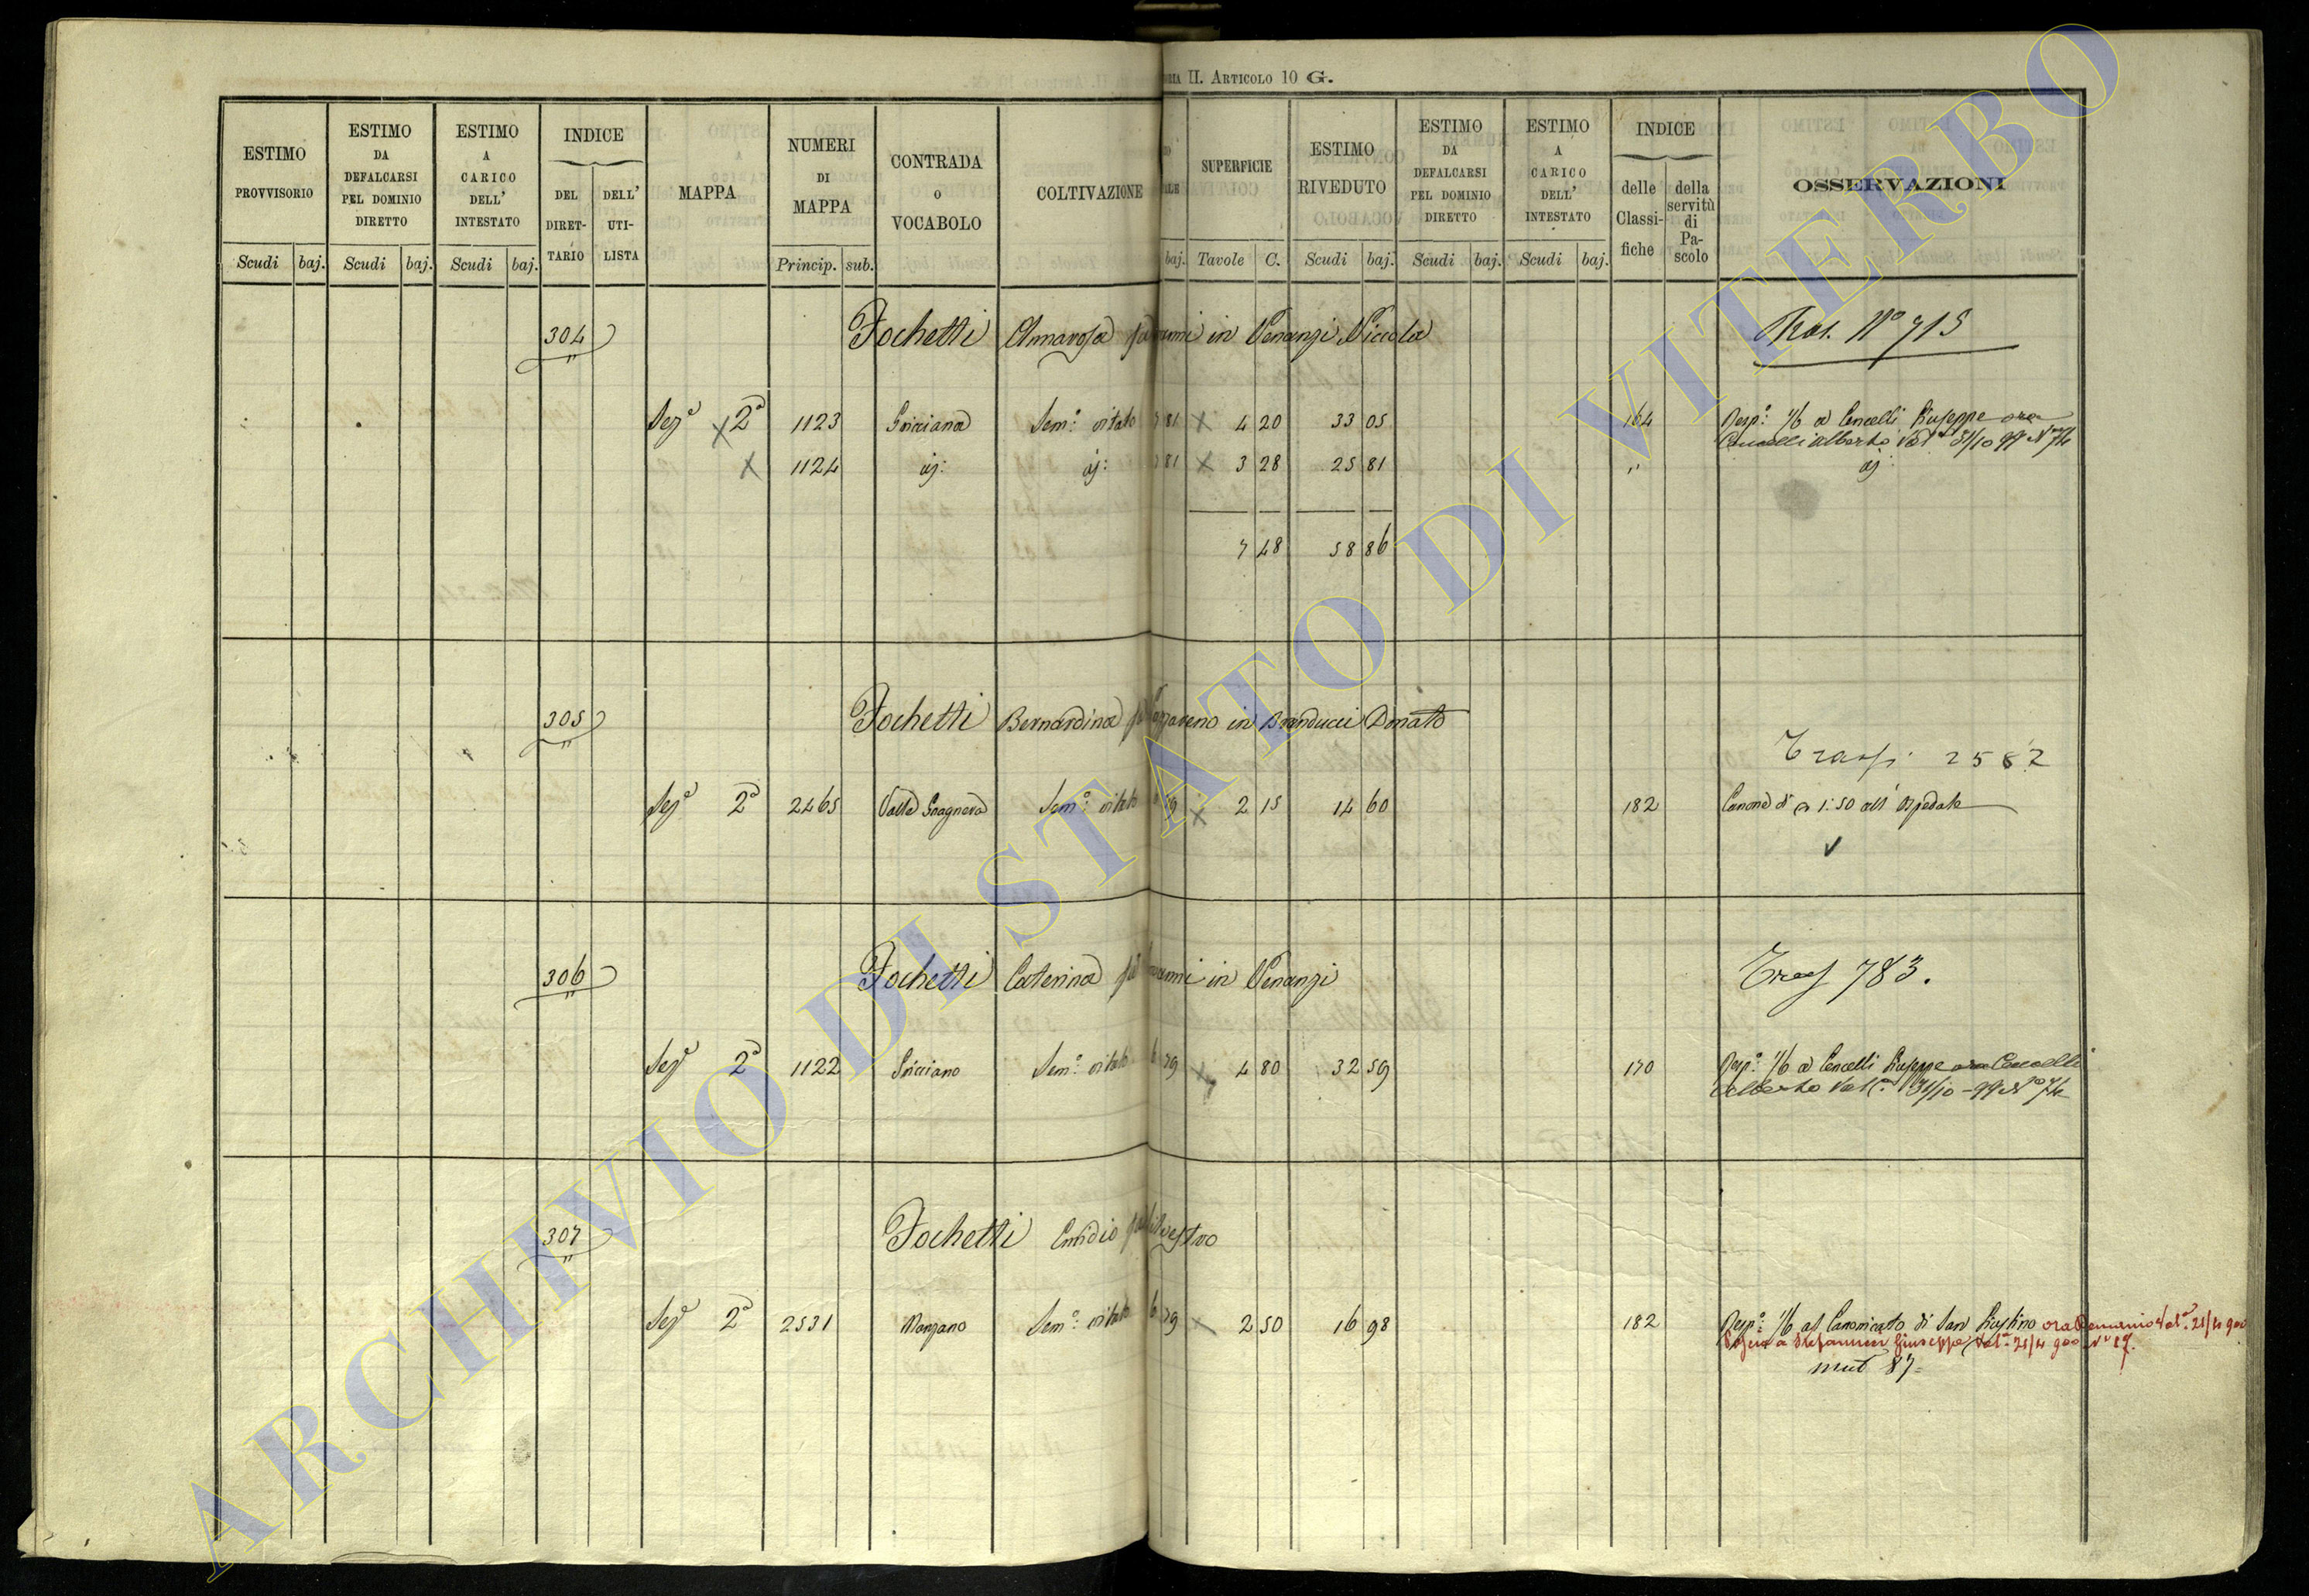 II. Articolo 10 G.
ESTIMO PROVVISORIO Scudi baj.
ESTIMO DA DEFALCARSI PEL DOMINIO DIRETTO Scudi baj.
ESTIMO A CARICO DELL' INTESTATO Scudi baj.
INDICE DEL DIRET-TARIO DELL' UTI-LISTA
MAPPA
NUMERI DI MAPPA Princip. sub.
CONTRADA o VOCABOLO
COLTIVAZIONE
baj.
SUPERFICIE Tavole C.
ESTIMO RIVEDUTO Scudi baj.
ESTIMO DA DEFALCARSI PEL DOMINIO DIRETTO Scudi baj.
ESTIMO A CARICO DELL' INTESTATO Scudi baj.
INDICE delle Classi-fiche della servitù di Pa-scolo
OSSERVAZIONI
304 Fochetti Annarosa in Venanzi Niccola
No 715
Sez.e 2a 1123 Sem.o vitato 81 4 20 33 05 164 Risp.a 1/6 a Cencelli Giuseppe ora
Cencelli Alberto Vol.a 31/10 99 No 74
1124 id: id: 81 3 28 25 81 " id
7 48 58 86
305 Fochetti Bernardina in Branducci Donato
2582
Sez.e 2a 2465 Valle Sem.o vitato 79 2 15 14 60 182 Canone di 1:50 all' Ospedale
306 Fochetti Caterina in Venanzi
783.
Sez.e 2a 1122 Sem.o vitato 6 79 4 80 32 59 170 Risp.a 1/6 a Cencelli Giuseppe ora Cencelli
Alberto Vol.a 31/10-99 No 74
307 Fochetti Emidio Silvestro
Sez.e 2a 2531 Manzano Sem.o vitato 6 79 2 50 16 98 182 Risp.a 1/6 al Canonicato di San ora Demanio Vol.a 21/4 900
a Stefannucci Giuseppe Vol.a 21/4 900 No 87.
mut 87
ARCHIVIO DI STATO DI VITERBO